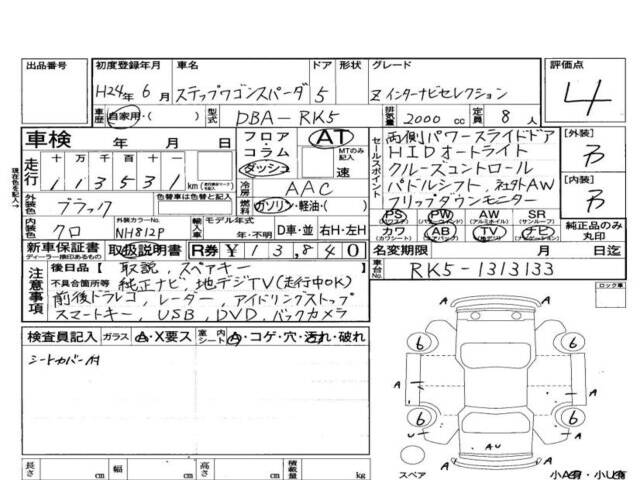 出品番号 初度登録年月 車名 ドア 形状 グレード 評価点
H24年 6月 ステップワゴンスパーダ 5 Z インターナビセレクション 4
車歴 自家用・( ) 型式 DBA-RK5 排気量 2000 cc 定員 8 人
車検 年 月 日 フロア コラム ダッシュ AT MTのみ記入 速
セールスポイント
両側パワースライドドア
HIDオートライト
クルーズコントロール
パドルシフト, 純正AW
フリップダウンモニター
[外装]
[内装]
走行 十 万 千 百 十 一
113531 km
冷房 AAC
現在色を記入→
外装色 ブラック 色替車は色替と記入 燃料 ガソリン・軽油・( )
内装色 クロ 外装カラーNo. NH812P 輸入車 モデル年式 年・ D車・並 右H・左H
PS PW AW SR
(パワーウインド) (アルミホイル) (サンルーフ)
カワ AB TV ナビ
(カワシート) (エアバッグ)
純正品のみ丸印
新車保証書 取扱説明書 R券 ¥13,840
ディーラー捺印あるもの
名変期限 月 日迄
車台No. RK5-1313133
注意事項
後日品 取説, スペアキー
不具合箇所等 純正ナビ, 地デジTV(走行中OK)
前後ドラレコ, レーダー, アイドリングストップ
スマートキー, USB, DVD, バックカメラ
ロック車
検査員記入 ガラス A・X要ス 室内シート A・コゲ・穴・汚れ・破れ
シートカバー付
6 6
A A A
6 6
A A
AU
A
スペア
小A有・小U有
長さ cm 幅 cm 高さ cm 積載量 kg